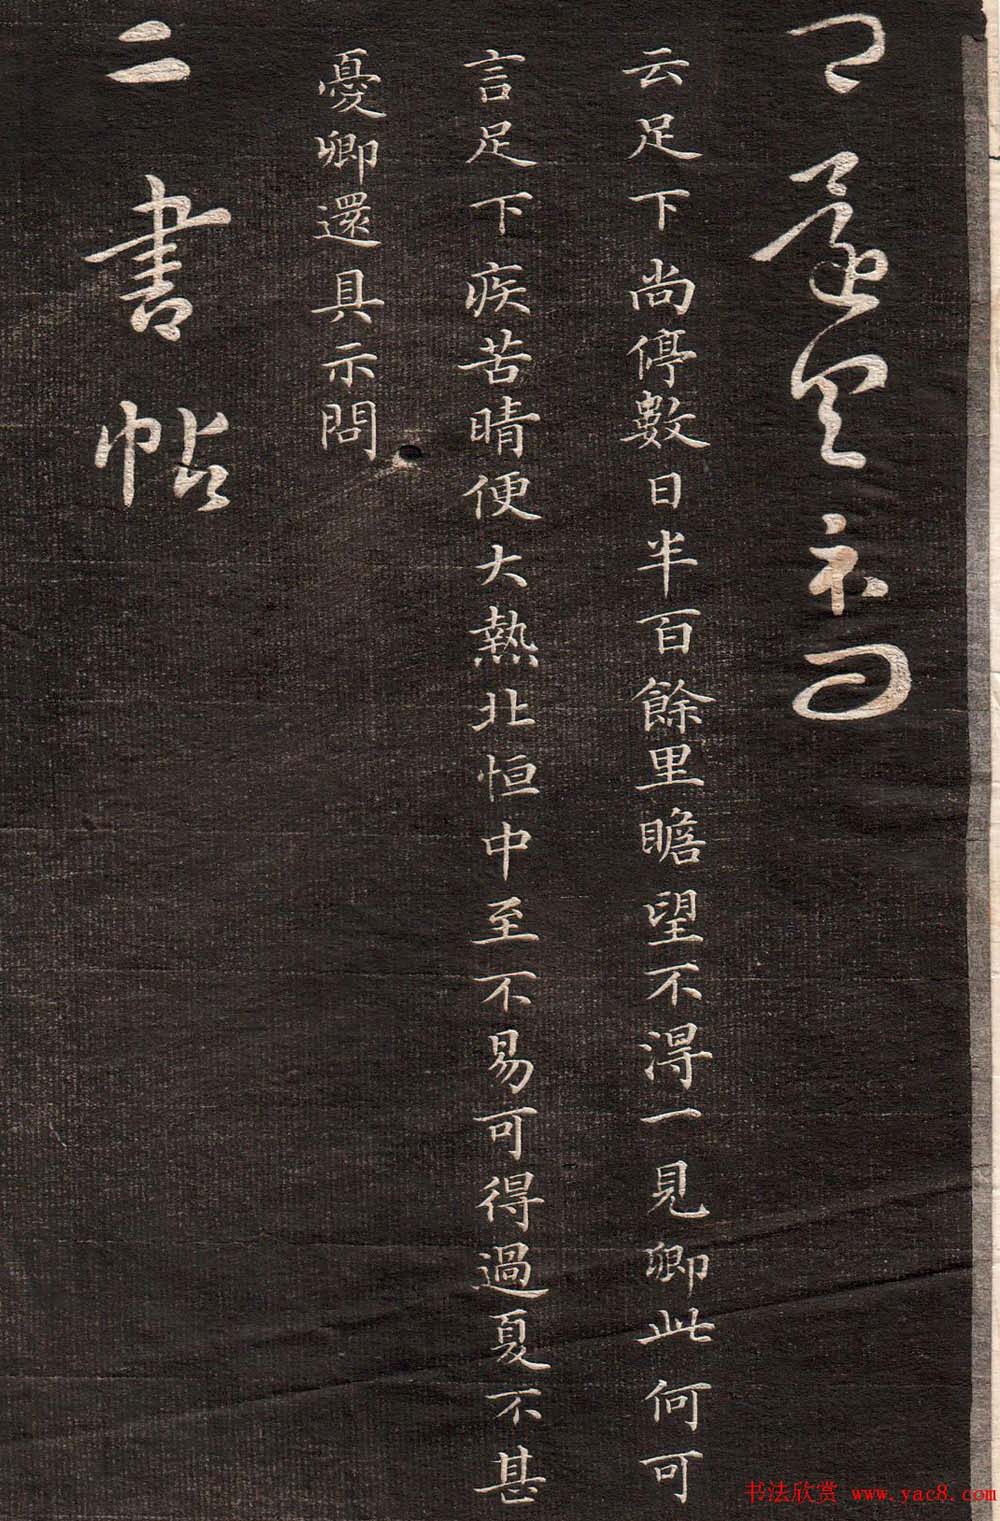 卿還具示問
云足下尚停數日半百餘里瞻望不得一見卿此何可
言足下疾苦晴便大熱北恒中至不易可得過夏不甚
憂卿還具示問
二書帖
书法欣赏 www.yac8.com